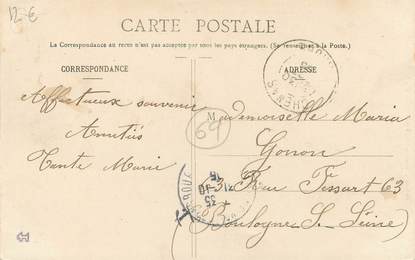 12 €
CARTE POSTALE
La Correspondance au recto n'est pas acceptée par tous les pays étrangers. (Se renseigner à la Poste.)
CORRESPONDANCE
ADRESSE
Affectueux souvenir
Amitiés
Tante Marie
69
Mademoiselle Maria
Gonon
3 Rue Tessart 63
Boulogne S. Seine